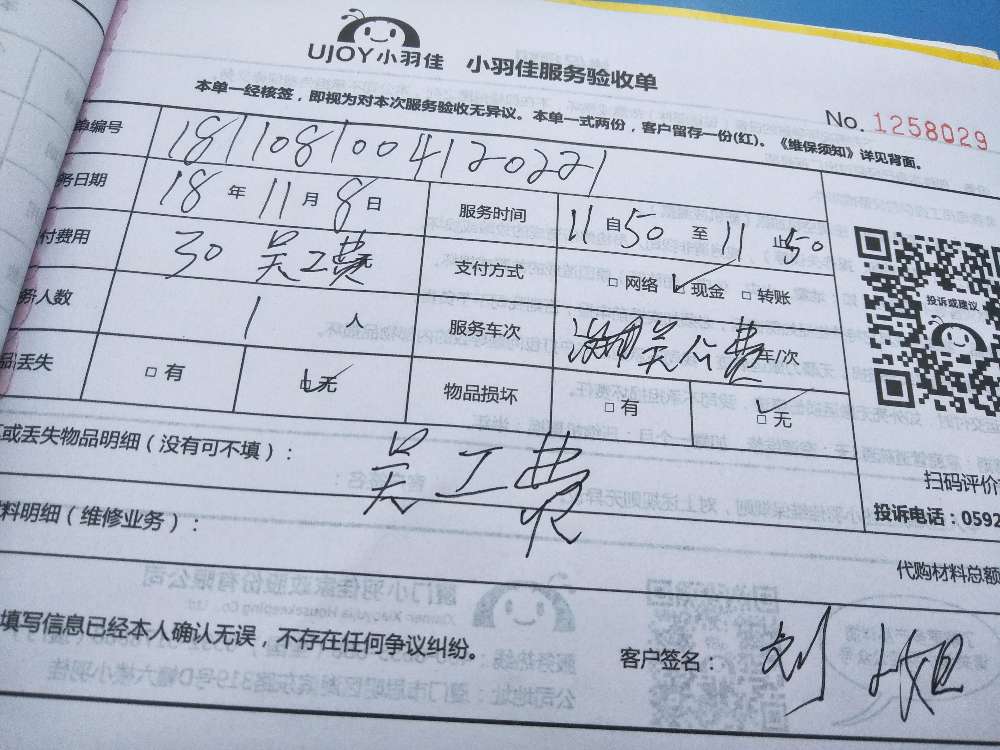 UJOY小羽佳 小羽佳服务验收单
本单一经核签，即视为对本次服务验收无异议。本单一式两份，客户留存一份(红)。《维保须知》详见背面。
No. 1258029
单编号 1811081004120221
务日期 18 年 11 月 8 日 服务时间 11 自 50 至 11 止 50
付费用 30 吴工费 支付方式 □ 网络 ☑ 现金 □ 转账
务人数 1 人 服务车次 车/次
品丢失 □ 有 ☑ 无 物品损坏 □ 有 ☑ 无
投诉或建议
或丢失物品明细（没有可不填）： 吴工费
扫码评价
投诉电话：0592
料明细（维修业务）：
代购材料总额
填写信息已经本人确认无误，不存在任何争议纠纷。
客户签名： 刘小姐